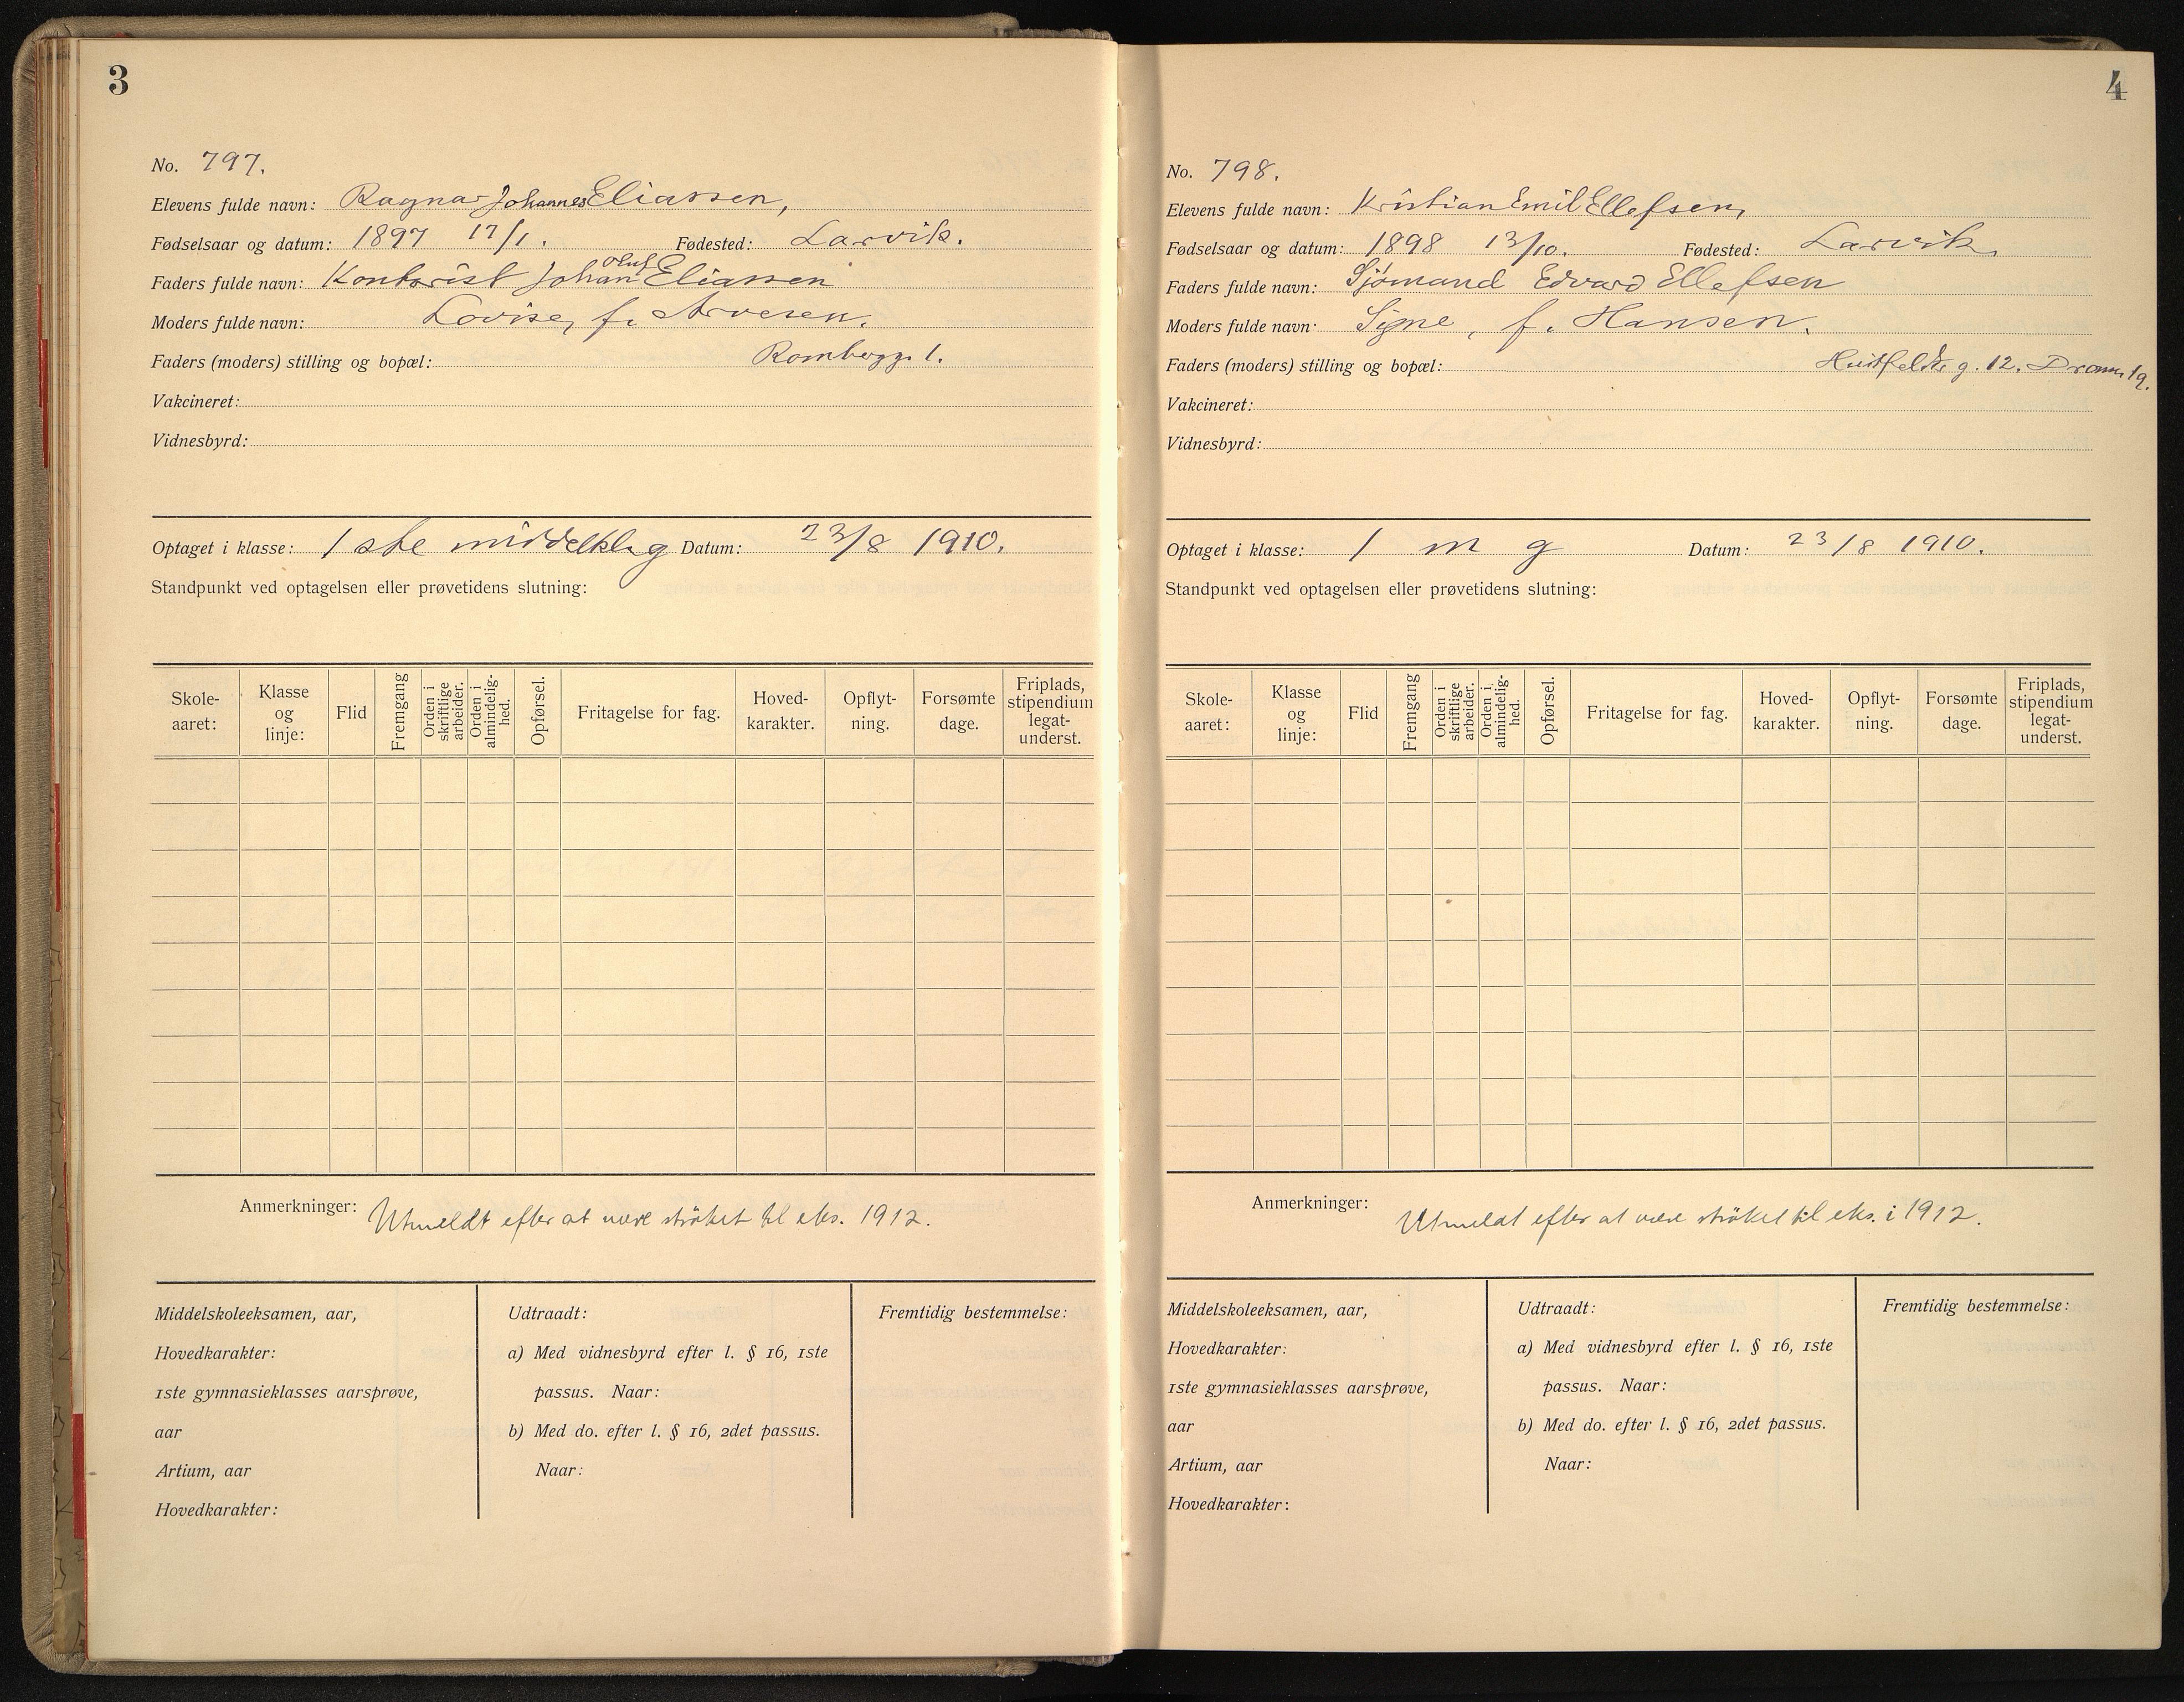 3
No. 797.
Elevens fulde navn: Ragnar Johannes Eliassen,
Fødselsaar og datum: 1897 17/1. Fødested: Larvik.
Faders fulde navn: Kontorist Johan Oluf Eliassen
Moders fulde navn: Lovise, f. Arvesen.
Faders (moders) stilling og bopæl: Rombergg. 1.
Vakcineret:
Vidnesbyrd:
Optaget i klasse: 1 ste middelkl. g Datum: 23/8 1910.
Standpunkt ved optagelsen eller prøvetidens slutning:
Skole-aaret: Klasse og linje: Flid Fremgang Orden i skriftlige arbeider. Orden i almindelig-hed. Opførsel. Fritagelse for fag. Hoved-karakter. Opflyt-ning. Forsømte dage. Friplads, stipendium legat-underst.
Anmerkninger: Utmeldt efter at være strøket til eks. 1912.
Middelskoleeksamen, aar,
Hovedkarakter:
1ste gymnasieklasses aarsprøve,
aar
Artium, aar
Hovedkarakter:
Udtraadt:
a) Med vidnesbyrd efter l. § 16, 1ste
passus. Naar:
b) Med do. efter l. § 16, 2det passus.
Naar:
Fremtidig bestemmelse:
4
No. 798.
Elevens fulde navn: Kristian Emil Ellefsen,
Fødselsaar og datum: 1898 13/10. Fødested: Larvik.
Faders fulde navn: Sjømand Edvard Ellefsen
Moders fulde navn: Signe, f. Hansen.
Faders (moders) stilling og bopæl: g. 12.
Vakcineret:
Vidnesbyrd:
Optaget i klasse: 1 m g Datum: 23/8 1910.
Standpunkt ved optagelsen eller prøvetidens slutning:
Skole-aaret: Klasse og linje: Flid Fremgang Orden i skriftlige arbeider. Orden i almindelig-hed. Opførsel. Fritagelse for fag. Hoved-karakter. Opflyt-ning. Forsømte dage. Friplads, stipendium legat-underst.
Anmerkninger: Utmeldt efter at være strøket til eks. i 1912.
Middelskoleeksamen, aar,
Hovedkarakter:
1ste gymnasieklasses aarsprøve,
aar
Artium, aar
Hovedkarakter:
Udtraadt:
a) Med vidnesbyrd efter l. § 16, 1ste
passus. Naar:
b) Med do. efter l. § 16, 2det passus.
Naar:
Fremtidig bestemmelse: